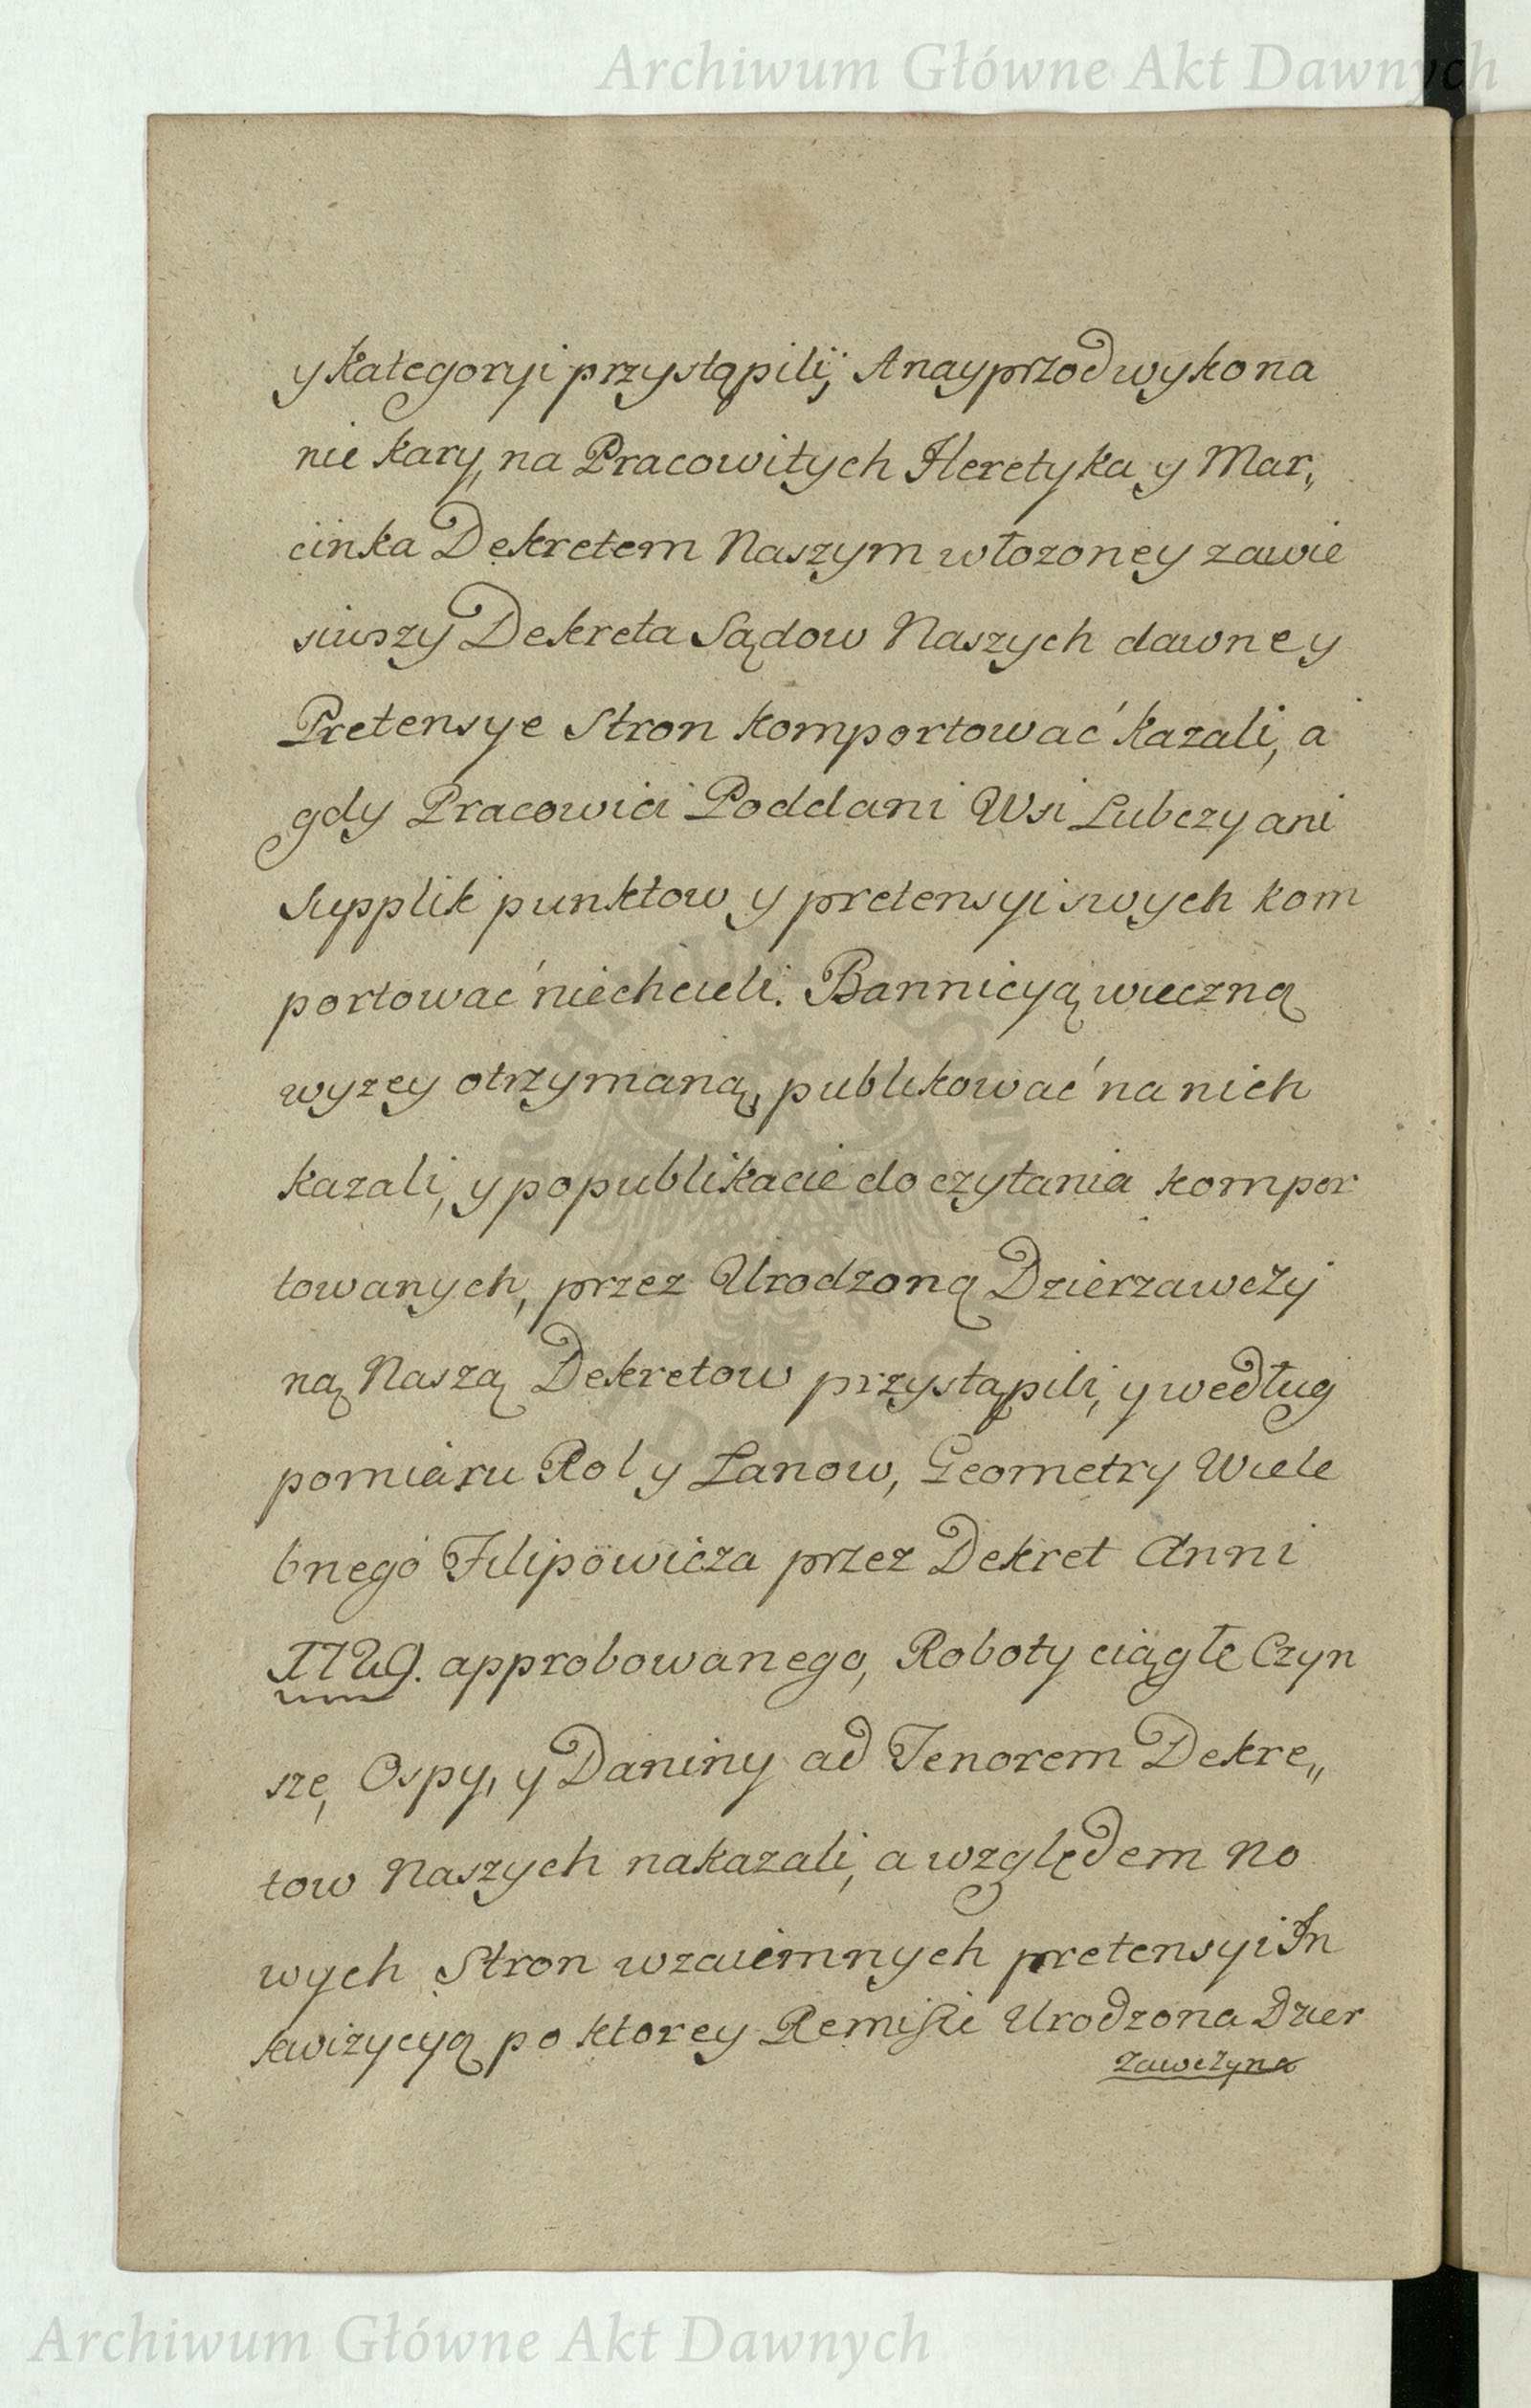 Archiwum Główne Akt Dawnych
y kategoryi przystąpilij, A nayprzod wykona
nie kary, na Pracowitych Heretyka y Mar„
cinka Dekretem Naszym włozoney zawie
siwszy Dekreta Sądow Naszych dawney
Pretensye Stron komportować kazali, a
gdy Pracowici Poddani Wsi Lubczy ani
Supplik punktow y pretensyi swych kom
portować niechcieli. Bannicyą wieczną
wyzey otrzymaną, publikować na nich
kazali, y po publikacie do czytania kompor
towanych, przez Urodzoną Dzierzawczy
ną Naszą Dekretow przystąpili, y według
pomiaru Rol y Lanow, Geometry Wiele
bnego Filipowicza przez Dekret Anni
1729. approbowanego, Roboty ciągłe Czyn
sze, Ospy, y Daniny ad Tenorem Dekre„
tow Naszych nakazali, a względem No
wych Stron wzaiemnych pretensyi In
kwizycyą po ktorey Remissie Urodzona Dzier
zawczyna
Archiwum Główne Akt Dawnych